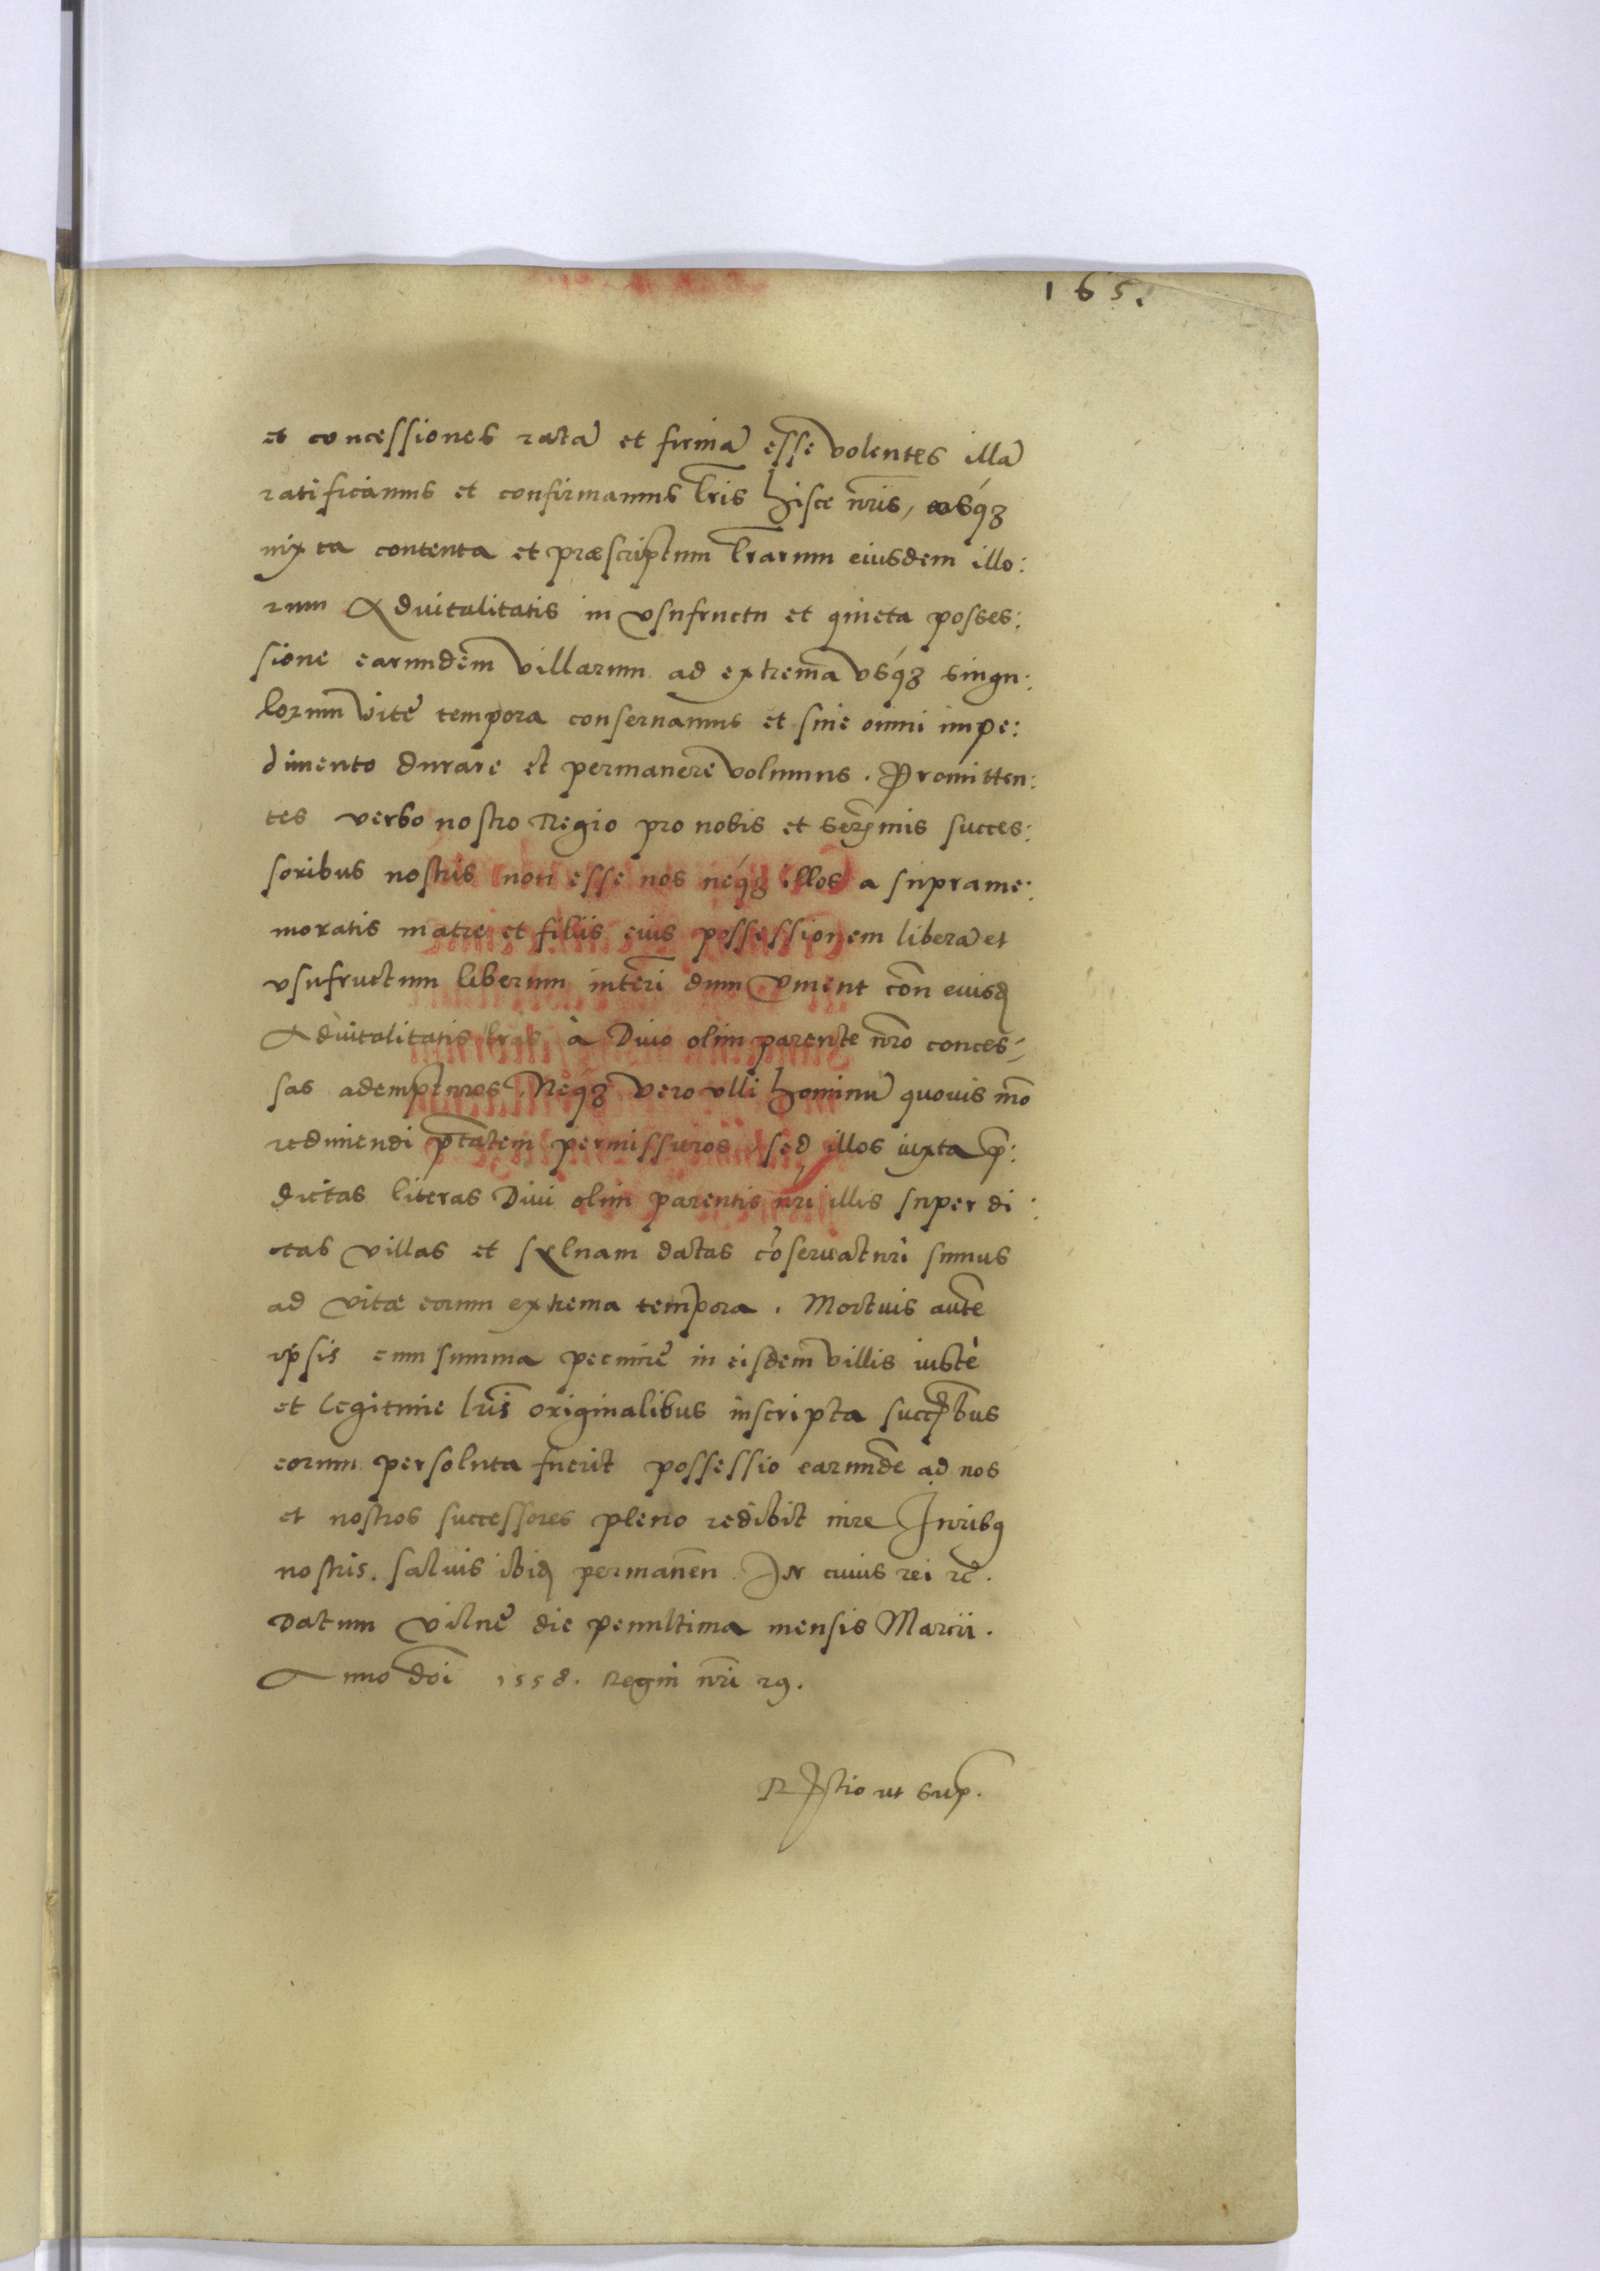 165.
et concessiones ratã et firmã esse volentes illã
ratificamus et confirmamus lr̃is hisce nr̃is, eosq́ꝫ
iuxta contenta et præscriptum lr̃arum eiusdem illo:
rum Aduitalitatis in vsufructu et quieta posses:
sione earundem villarum ad extrema vsq́ꝫ singu:
lorum vitę tempora conseruamus et sine omni impe:
dimento durare et permanere volumus. Promitten:
tes verbo nostro Regio pro nobis et Serẽmis succes:
soribus nostris non esse nos neq́ꝫ illos a suprame:
moratis matre et filiis eius possessionem liberã et
vsufructum liberum interi dum viuent con̄ eiusdꝫ
Aduitalitatis lr̃as à Diuo olim parente nr̃o conces,
sas adempturos. Neq́ꝫ vero vlli hominũ quouis mõ
redimendi ptãtem permissuros, sed illos iuxta p̃:
dictas literas Diui olim parentis nr̃i illis super di:
ctas villas et syluam datas cõseruaturi sumus
ad vitæ eorum extrema tempora. Mortuis autẽ
ipsis cum summa pecunię in eisdem villis iustè
et legitime lr̃is originalibus inscripta succr̃ibus
eorum persoluta fuerit possessio earundẽ ad nos
et nostros successores pleno redibit iure Iuribꝰ
nostris. saluis ibidꝫ permanen̄. In cuius rei rc̃.
Datum Vilnę die penultima mensis Marcii.
Anno dñi 1558. Regni nr̃i 29.
Rľtio ut sup̃.